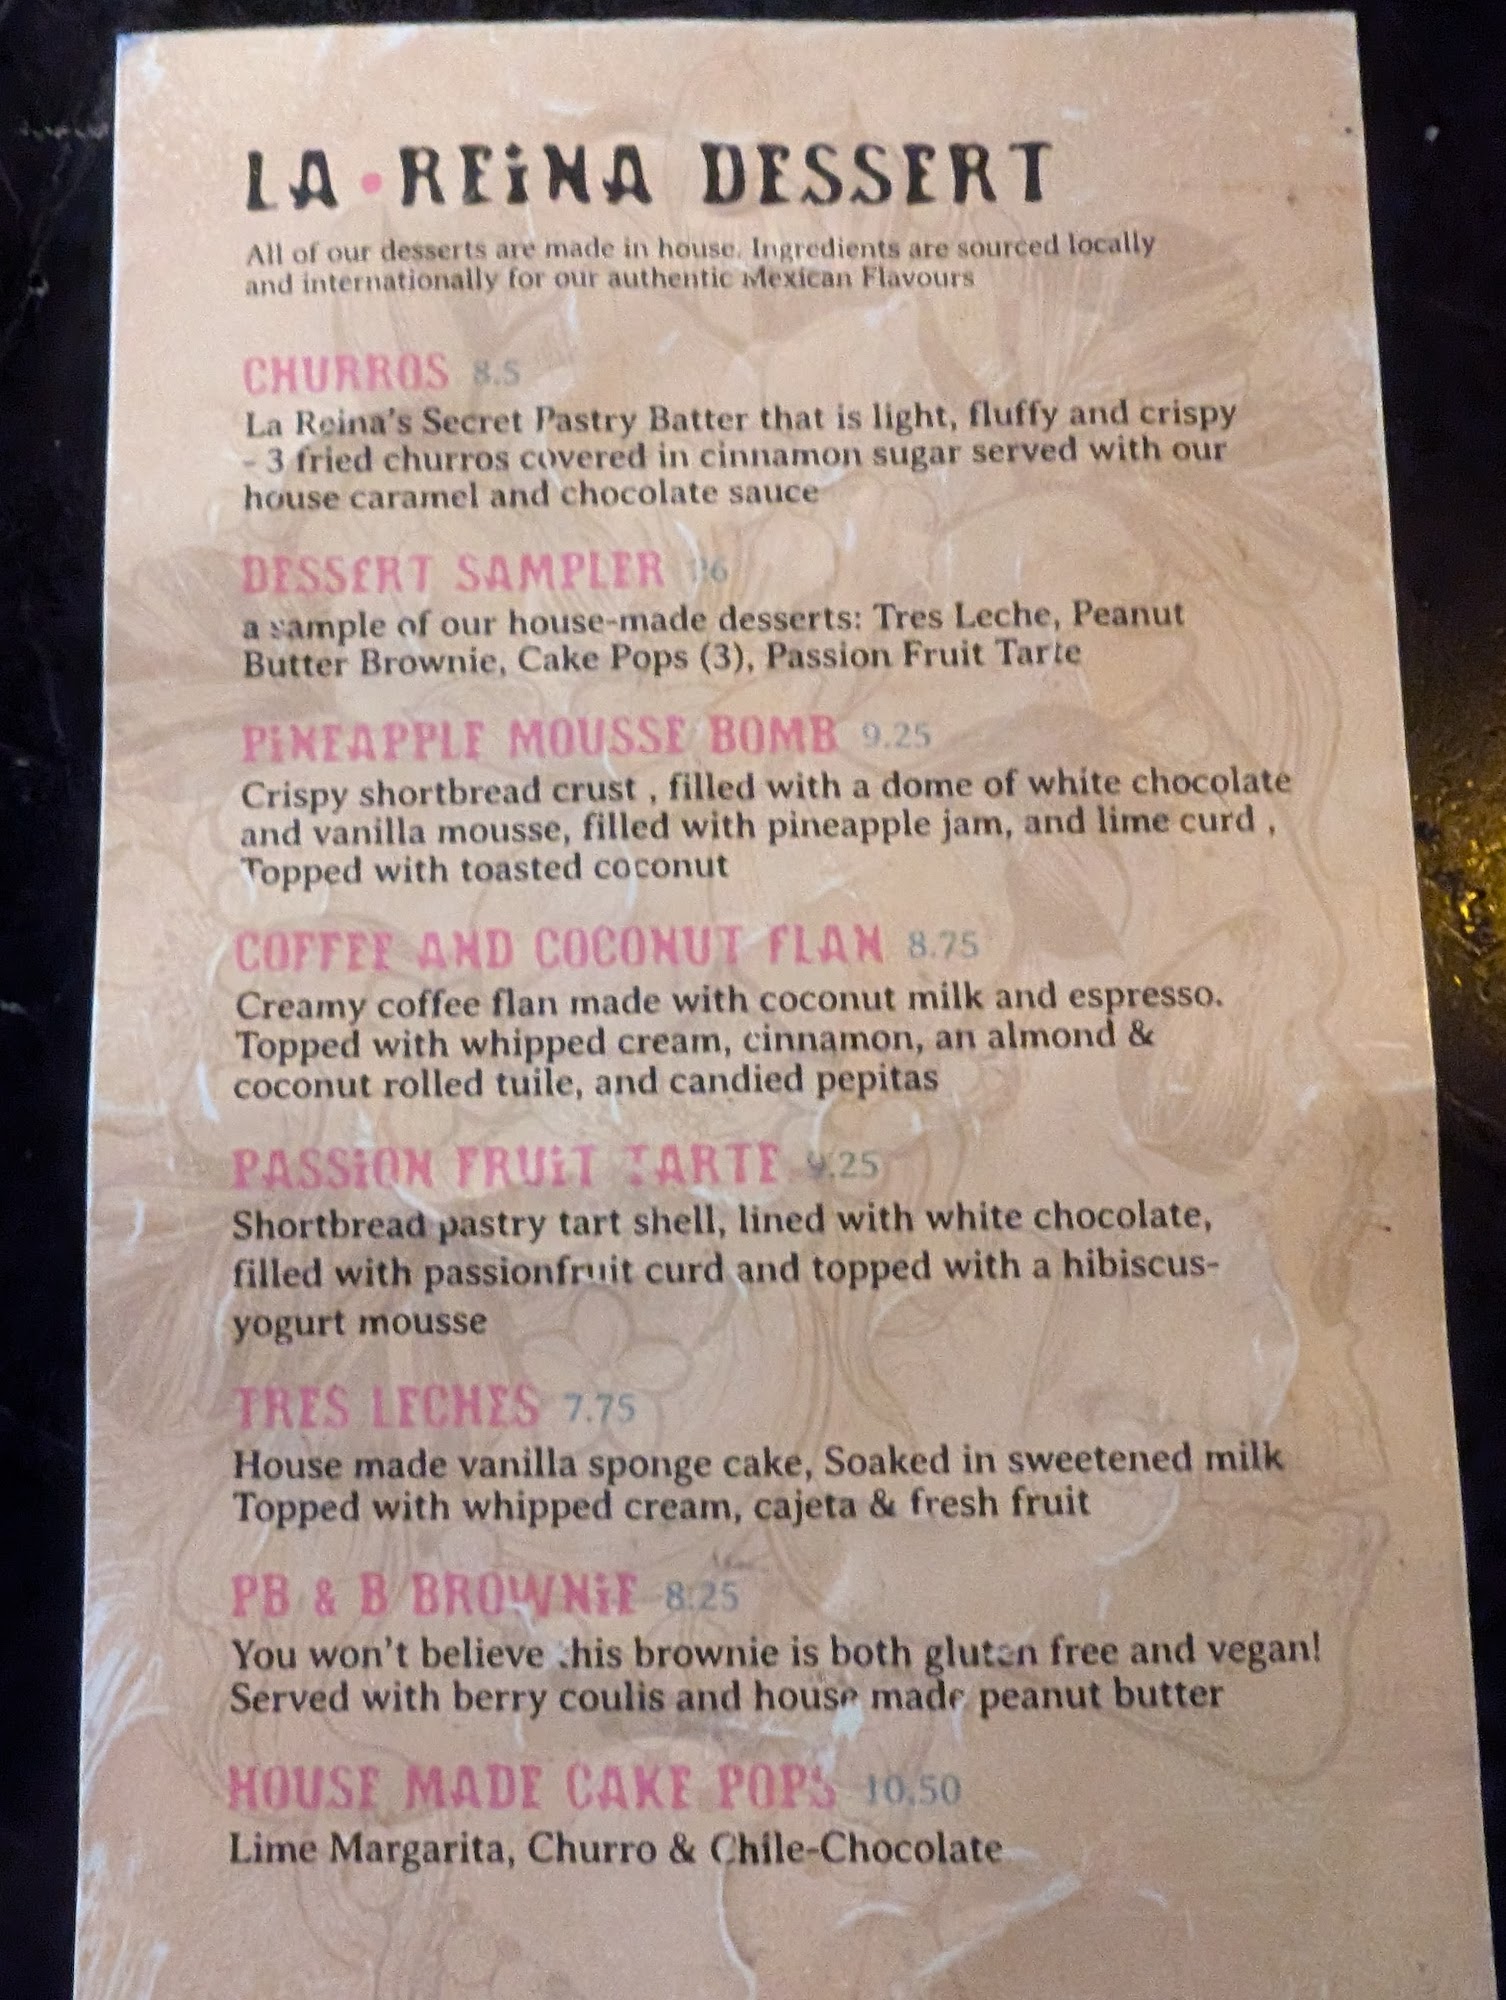 LA • REiNA DESSERT
All of our desserts are made in house. Ingredients are sourced locally
and internationally for our authentic Mexican Flavours
CHURROS 8.5
La Reina's Secret Pastry Batter that is light, fluffy and crispy
- 3 fried churros covered in cinnamon sugar served with our
house caramel and chocolate sauce
DESSERT SAMPLER
a sample of our house-made desserts: Tres Leche, Peanut
Butter Brownie, Cake Pops (3), Passion Fruit Tarte
PiNEAPPLE MOUSSE BOMB 9.25
Crispy shortbread crust , filled with a dome of white chocolate
and vanilla mousse, filled with pineapple jam, and lime curd ,
Topped with toasted coconut
COFFEE AND COCONUT FLAN 8.75
Creamy coffee flan made with coconut milk and espresso.
Topped with whipped cream, cinnamon, an almond &
coconut rolled tuile, and candied pepitas
PASSiON FRUiT TARTE 9.25
Shortbread pastry tart shell, lined with white chocolate,
filled with passionfruit curd and topped with a hibiscus-
yogurt mousse
TRES LECHES 7.75
House made vanilla sponge cake, Soaked in sweetened milk
Topped with whipped cream, cajeta & fresh fruit
PB & B BROWNiE 8.25
You won't believe this brownie is both gluten free and vegan!
Served with berry coulis and house made peanut butter
HOUSE MADE CAKE POPS 10.50
Lime Margarita, Churro & Chile-Chocolate